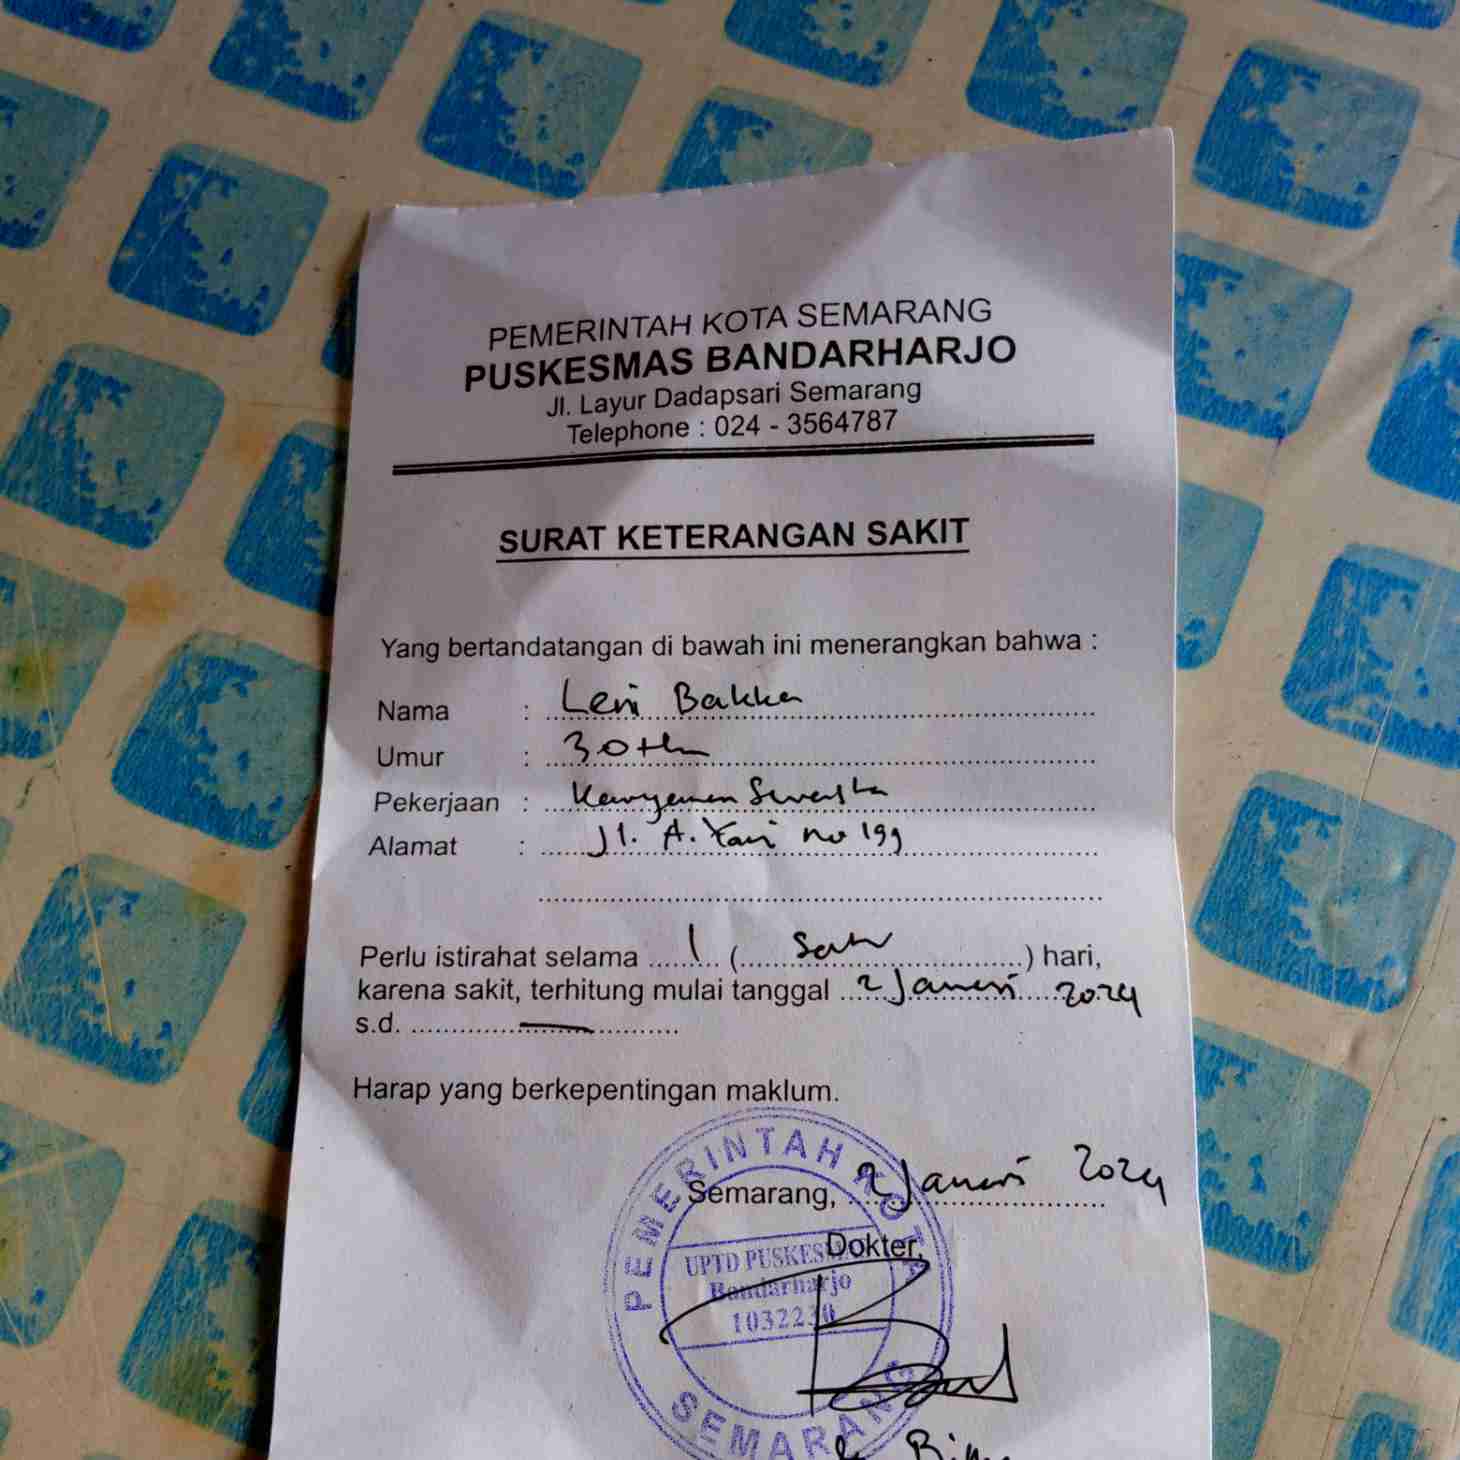 PEMERINTAH KOTA SEMARANG
PUSKESMAS BANDARHARJO
Jl. Layur Dadapsari Semarang
Telephone : 024 - 3564787
SURAT KETERANGAN SAKIT
Yang bertandatangan di bawah ini menerangkan bahwa :
Nama : Leni Bakka
Umur : 30 th
Pekerjaan : Karyawan Swasta
Alamat : Jl. A. Yani no 199
Perlu istirahat selama 1 ( Satu ) hari,
karena sakit, terhitung mulai tanggal 2 Januari 2024
s.d. —
Harap yang berkepentingan maklum.
Semarang, 2 Januari 2024
Dokter,
PEMERINTAH KOTA
UPTD PUSKESMAS
Bandarharjo
1032230
SEMARANG